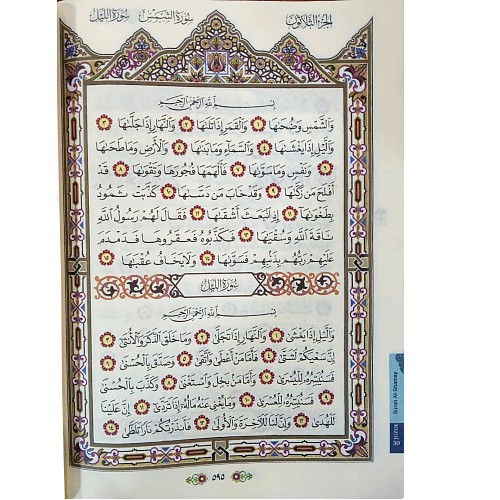 سورة الليل سورة الشمس الجزء الثلاثون
بسم الله الرحمن الرحيم
والشمس وضحىها ١ والقمر إذا تلىها ٢ والنهار إذا جلىها
٣ واليل إذا يغشىها ٤ والسماء وما بنىها ٥ والأرض وما طحىها
٦ ونفس وما سوىها ٧ فألهمها فجورها وتقوىها ٨ قد
أفلح من زكىها ٩ وقد خاب من دسىها ١٠ كذبت ثمود
بطغوىها ١١ إذ انبعث أشقىها ١٢ فقال لهم رسول الله
ناقة الله وسقيها ١٣ فكذبوه فعقروها فدمدم
عليهم ربهم بذنبهم فسوىها ١٤ ولا يخاف عقبها ١٥
سورة الليل
بسم الله الرحمن الرحيم
واليل إذا يغشى ١ والنهار إذا تجلى ٢ وما خلق الذكر والأنثى
٣ إن سعيكم لشتى ٤ فأما من أعطى واتقى ٥ وصدق بالحسنى
٦ فسنيسره لليسرى ٧ وأما من بخل واستغنى ٨ وكذب بالحسنى
٩ فسنيسره للعسرى ١٠ وما يغنى عنه ماله إذا تردى ١١ إن علينا
للهدى ١٢ وإن لنا للآخرة والأولى ١٣ فأنذرتكم نارا تلظى ١٤
٥٩٥
Surah Al-Shamsy
JUZUK 30